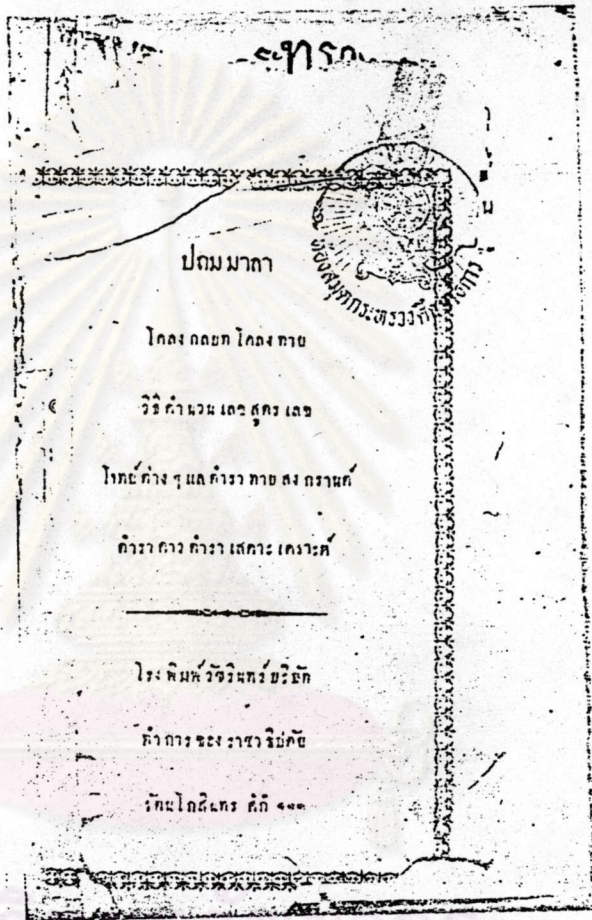 ปถมมาลา
โคลง กลบท โคลง ทาย
วิธี คำนวน เลข สูตร เลข
โจทย์ ต่าง ๆ แล ตำรา ทาย สง กรานต์
ตำรา ดาว ตำรา เสดาะ เคราะห์
โรง พิมพ์ วัชรินทร์ บริษัท
ทำ การ ของ ราชา ธิปตัย
รัตนโกสินทร ศก๊
ห้องสมุดกระทรวงศึกษาธิการ